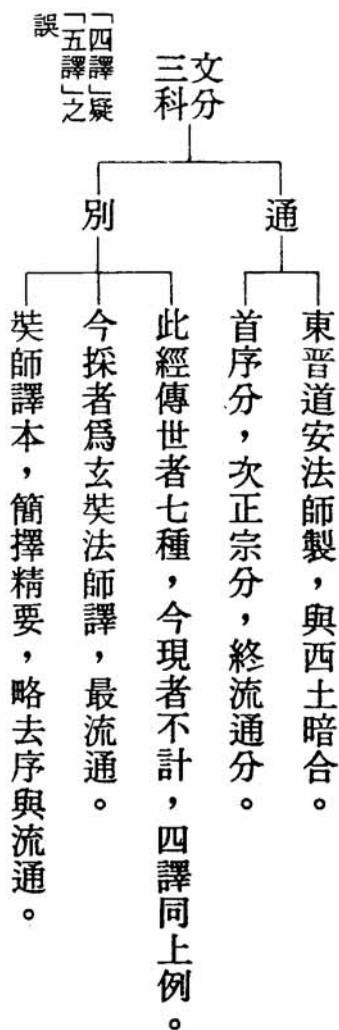 文分
三科
通
東晉道安法師製,與西土暗合。
首序分,次正宗分,終流通分。
別
此經傳世者七種,今現者不計,四譯同上例。
今採者爲玄奘法師譯,最流通。
奘師譯本,簡擇精要,略去序與流通。
「四譯」疑
「五譯」之
誤